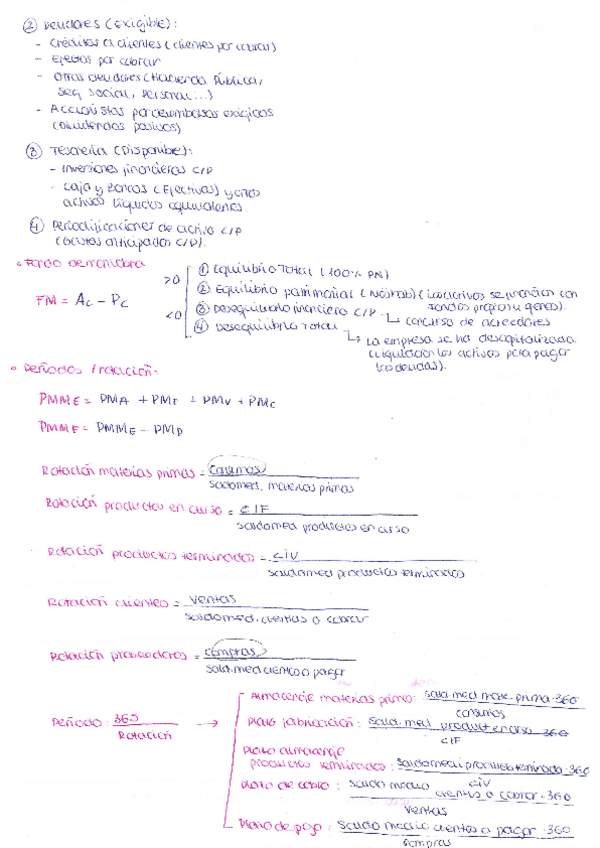 ② Deudores (exigible):
- Créditos a clientes (clientes por cobrar)
- Efectos por cobrar
- Otros deudores (Hacienda Pública,
Seg social, Personal...)
- Accionistas por desembolsos exigidos
(Dividendos pasivos)
③ Tesorería (Disponible):
- Inversiones financieras C/P
- Caja y Bancos (Efectivos) y otros
activos líquidos equivalentes.
④ Periodificaciones de activo C/P
(Gastos anticipados C/P).
• Fondo de maniobra
FM = Ac - Pc
>0
<0
① Equilibrio Total (100% PN)
② Equilibrio patrimonial (Los activos se financian con
fondos propios y ajenos).
③ Desequilibrio financiero C/P → concurso de acreedores
④ Desequilibrio Total
→ La empresa se ha descapitalizado.
(Liquidación los activos para pagar
las deudas).
• Períodos / rotación:
PMME = PMA + PMF + PMV + PMC
PMMF = PMME - PMP
Rotación materias primas = Consumos
Saldo med. materias primas
Rotación productos en curso = CIF
Saldo med productos en curso
Rotación productos terminados = CIV
Saldo med productos terminados
Rotación clientes = Ventas
Saldo med. cuentas a cobrar
Rotación proveedores = Compras
Saldo med cuentas a pagar
Período: 365
Rotación
→
Almacenaje materias primas: Sald med mate. prima · 360
consumos
Plazo fabricación: Sald. med product en curso · 360
CIF
Plazo almacenaje
productos terminados: Saldo medi productos terminado · 360
CIV
Plazo de cobro: Saldo medio cuentas a cobrar · 360
Ventas
Plazo de pago: Saldo medio cuentas a pagar · 360
Compras